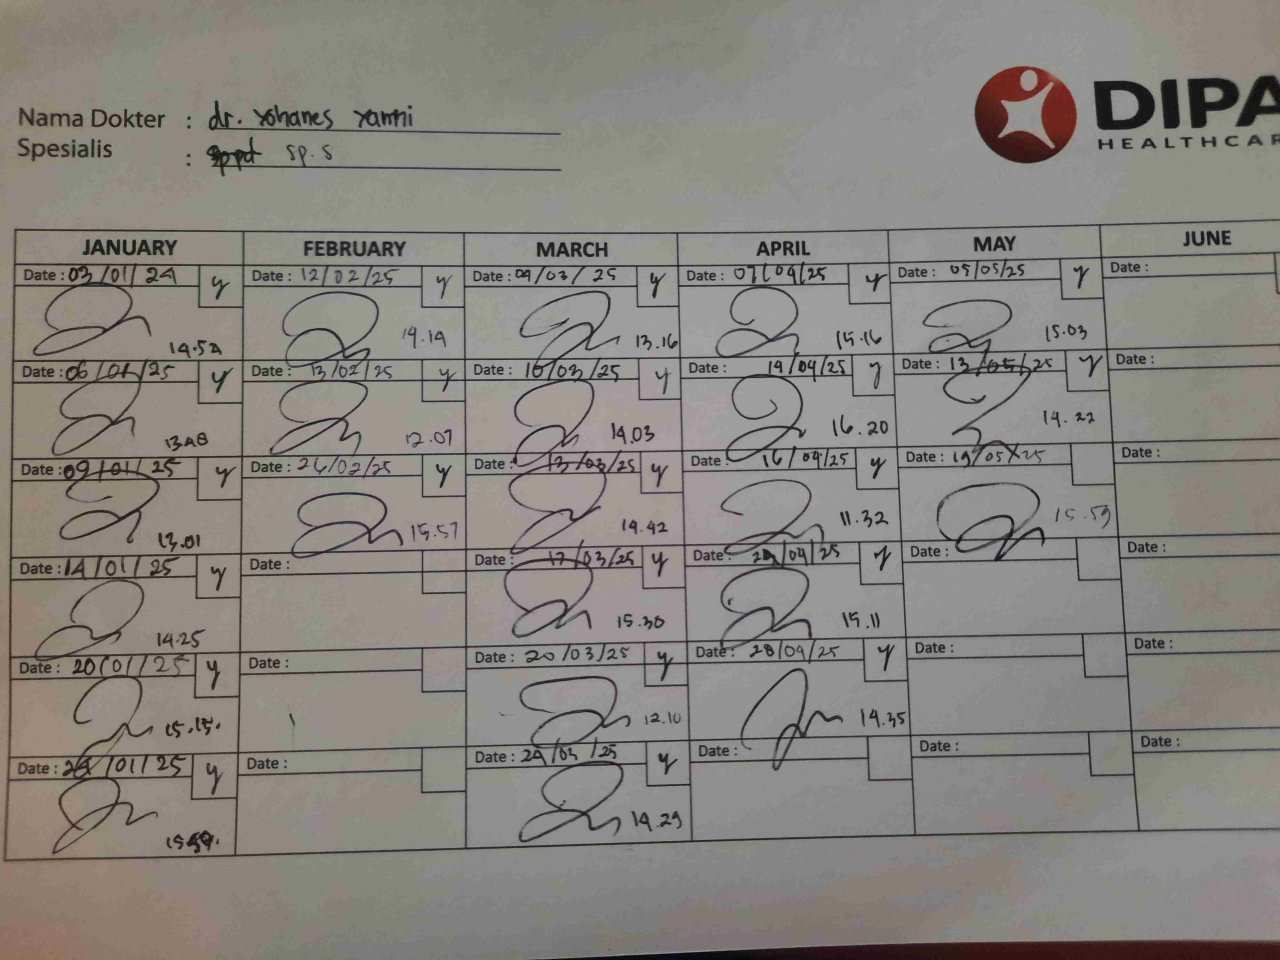 DIPA
HEALTHCAR
Nama Dokter : dr. Yohanes Yanni
Spesialis : sppd sp.s
JANUARY FEBRUARY MARCH APRIL MAY JUNE
Date : 03/01/24 y Date : 12/02/25 y Date : 04/03/25 y Date : 07/04/25 y Date : 05/05/25 y Date :
14.52 14.14 13.16 15.16 15.03
Date : 06/01/25 y Date : 13/02/25 y Date : 10/03/25 y Date : 14/04/25 y Date : 13/05/25 y Date :
13.48 12.07 14.03 16.20 14.22
Date : 09/01/25 y Date : 26/02/25 y Date : 13/03/25 y Date : 16/04/25 y Date : 19/05/25 Date :
13.01 15.57 14.42 11.32 15.53
Date : 14/01/25 y Date : Date : 17/03/25 y Date : 24/04/25 y Date : Date :
14.25 15.30 15.11
Date : 20/01/25 y Date : Date : 20/03/25 y Date : 28/04/25 y Date : Date :
15.15. 12.10 14.35
Date : 24/01/25 y Date : Date : 24/03/25 y Date : Date : Date :
14.29